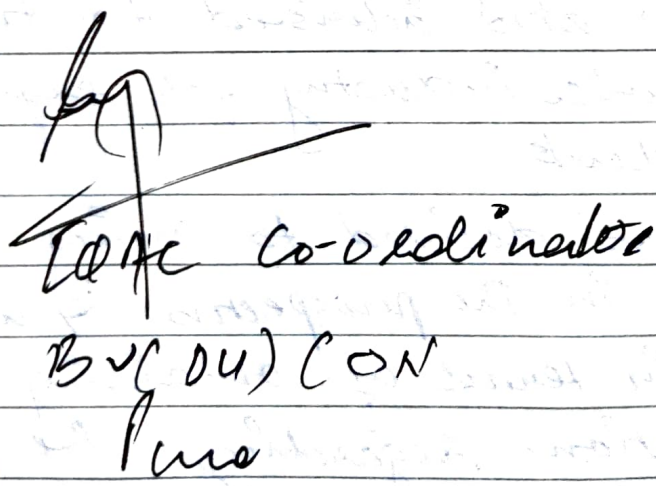 IQAC Co-ordinator
BV(DU)CON
Pune